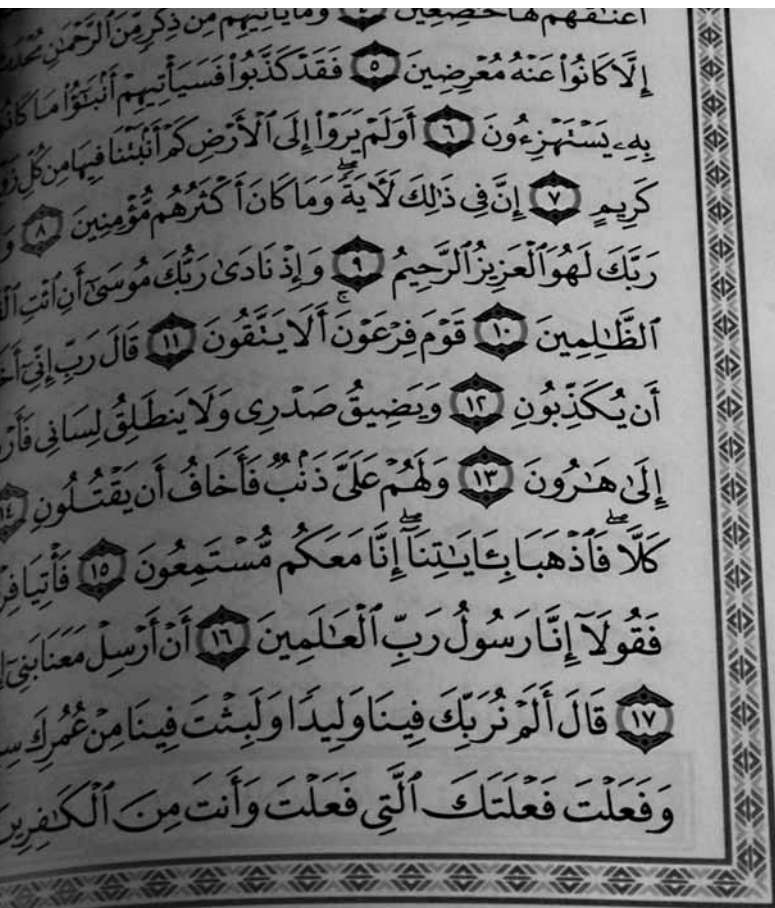 أَعْنَٰقُهُمْ لَهَا خَٰضِعِينَ ٤ وَمَا يَأْتِيهِم مِّن ذِكْرٍ مِّنَ ٱلرَّحْمَٰنِ مُحْدَثٍ
إِلَّا كَانُوا۟ عَنْهُ مُعْرِضِينَ ٥ فَقَدْ كَذَّبُوا۟ فَسَيَأْتِيهِمْ أَنۢبَٰٓؤُا۟ مَا كَانُوا۟
بِهِۦ يَسْتَهْزِءُونَ ٦ أَوَلَمْ يَرَوْا۟ إِلَى ٱلْأَرْضِ كَمْ أَنۢبَتْنَا فِيهَا مِن كُلِّ
كَرِيمٍ ٧ إِنَّ فِى ذَٰلِكَ لَءَايَةً ۖ وَمَا كَانَ أَكْثَرُهُم مُّؤْمِنِينَ ٨
رَبَّكَ لَهُوَ ٱلْعَزِيزُ ٱلرَّحِيمُ ٩ وَإِذْ نَادَىٰ رَبُّكَ مُوسَىٰٓ أَنِ ٱئْتِ
ٱلظَّٰلِمِينَ ١٠ قَوْمَ فِرْعَوْنَ ۚ أَلَا يَتَّقُونَ ١١ قَالَ رَبِّ إِنِّىٓ
أَن يُكَذِّبُونِ ١٢ وَيَضِيقُ صَدْرِى وَلَا يَنطَلِقُ لِسَانِى
إِلَىٰ هَٰرُونَ ١٣ وَلَهُمْ عَلَىَّ ذَنۢبٌ فَأَخَافُ أَن يَقْتُلُونِ ١٤
كَلَّا ۖ فَٱذْهَبَا بِـَٔايَٰتِنَآ ۖ إِنَّا مَعَكُم مُّسْتَمِعُونَ ١٥ فَأْتِيَا
فَقُولَآ إِنَّا رَسُولُ رَبِّ ٱلْعَٰلَمِينَ ١٦ أَنْ أَرْسِلْ مَعَنَا بَنِىٓ
١٧ قَالَ أَلَمْ نُرَبِّكَ فِينَا وَلِيدًا وَلَبِثْتَ فِينَا مِنْ عُمُرِكَ
وَفَعَلْتَ فَعْلَتَكَ ٱلَّتِى فَعَلْتَ وَأَنتَ مِنَ ٱلْكَٰفِرِينَ